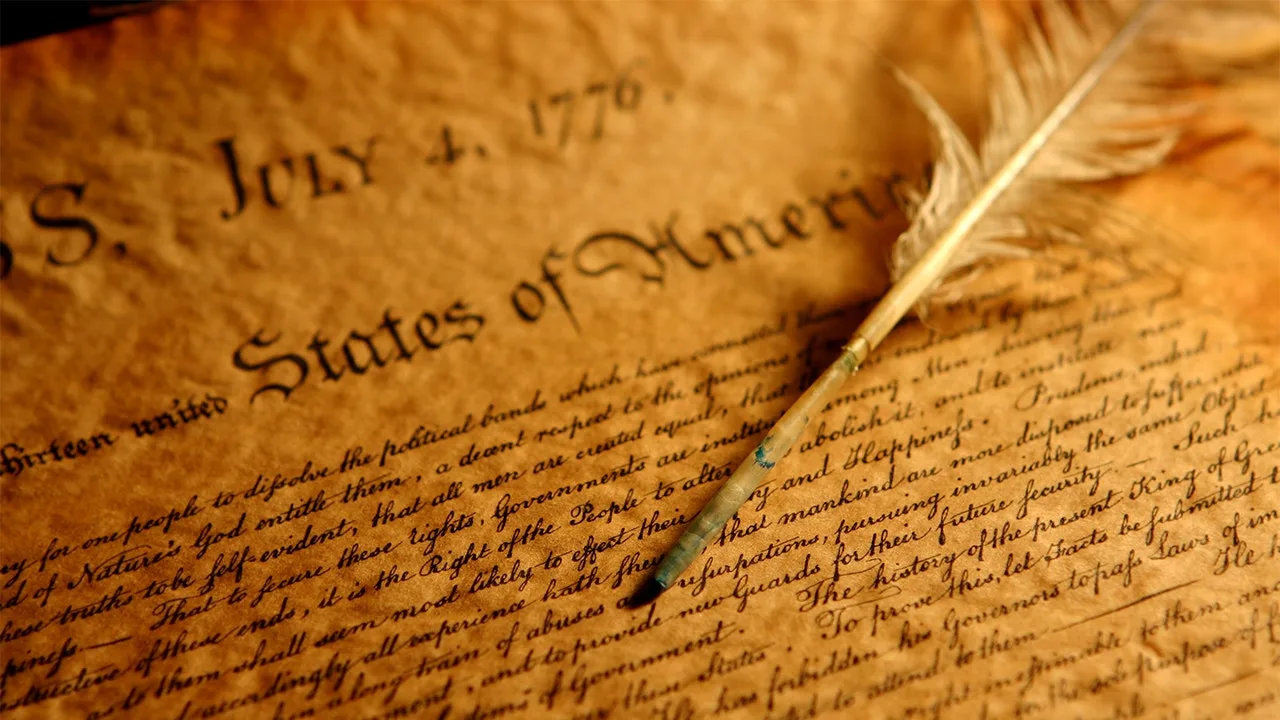 S. JULY 4, 1776.
hirteen united States of Americ
y for one people to diſsolve the political bands which have connected them
d of Nature's God entitle them, a decent respect to the opinions of
hese truths to be ſelf-evident, that all men are created equal, that endowed by their
pineſs.— That to secure these rights, Governments are institu among Men, deriving their
structive of these ends, it is the Right of the People to alter abolish it, and to institute new
as to them shall seem most likely to effect their ty and Happineſs. Prudence, indeed,
d accordingly all experience hath ſhew that mankind are more disposed to ſuffer, whi
hen a long train of abuses a uſurpations, pursuing invariably the same Object
ment, and to provide new Guards for their future ſecurity.— Such h
tems of Government. The history of the present King of Gre
r these States. To prove this, let Facts be ſubmitted t
He has forbidden his Governors to paſs Laws of im
ted to attend to them.— He h
right inestimable to them an
for the sole purpose of f